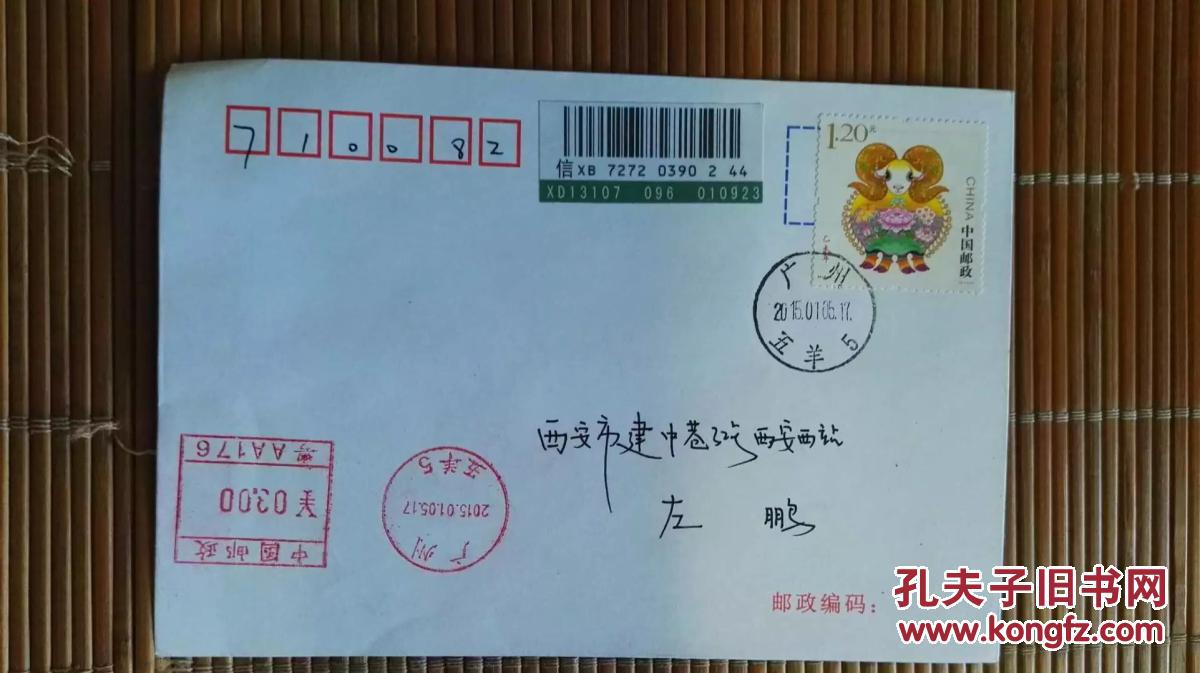 710082
信XB 7272 0390 2 44
XD13107 096 010923
1.20元
CHINA 中国邮政
乙未年
广州
2015.01.05.17.
五羊5
西安市建中巷32号西安西站
左 鹏
粤AA176
¥03.00
中国邮政
五羊5
2015.01.05.17
广州
邮政编码：
孔夫子旧书网
www.kongfz.com